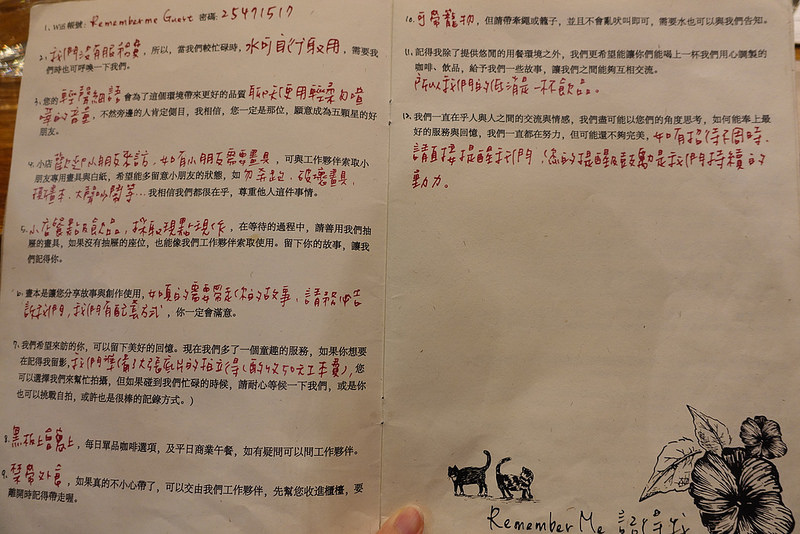 1. Wifi 帳號：Remember me Guest 密碼：25471517
2. 我們沒有服務員，所以，當我們較忙碌時，水可自行取用，需要我
們時也可呼喚一下我們。
3. 您的輕聲細語會為了這個環境帶來更好的品質
的音量，不然旁邊的人肯定側目，我相信，您一定是那位，願意成為五顆星的好
朋友。
4. 小店歡迎小朋友來訪，如有小朋友需要畫具，可與工作夥伴索取小
朋友專用畫具與白紙，希望能多留意小朋友的狀態，如勿奔跑、破壞畫具、
大聲吵鬧等…我相信我們都很在乎，尊重他人這件事情。
5. 小店餐點及飲品，採取現點現作，在等待的過程中，請善用我們抽
屜的畫具，如果沒有抽屜的座位，也能像我們工作夥伴索取使用。留下你的故事，讓我
們記得你。
6. 畫本是讓您分享故事與創作使用，如真的需要帶走你的故事，請務必告
訴我們，我們有配套方式，你一定會滿意。
7. 我們希望來訪的你，可以留下美好的回憶。現在我們多了一個童趣的服務，如果你想要
在記得我留影，我們準備了大張底片的拍立得（酌收50元工本費），您
可以選擇我們來幫忙拍攝，但如果碰到我們忙碌的時候，請耐心等候一下我們，或是你
也可以挑戰自拍，或許也是很棒的記錄方式。）
8. 黑板上會寫上，每日單品咖啡選項，及平日商業午餐，如有疑問可以問工作夥伴。
9. 禁帶外食，如果真的不小心帶了，可以交由我們工作夥伴，先幫您收進櫃檯，要
離開時記得帶走喔。
10. 可帶寵物，但請帶牽繩或籠子，並且不會亂吠叫即可，需要水也可以與我們告知。
11. 記得我除了提供悠閒的用餐環境之外，我們更希望能讓你們能喝上一杯我們用心調製的
咖啡、飲品，給予我們一些故事，讓我們之間能夠互相交流。
所以我們的低消是一杯飲品。
12. 我們一直在乎人與人之間的交流與情感，我們盡可能以您們的角度思考，如何能奉上最
好的服務與回憶，我們一直都在努力，但可能還不夠完美，如有招待不周時，
請直接提醒我們，您的提醒與鼓勵是我們持續的
動力。
Remember Me 記得我